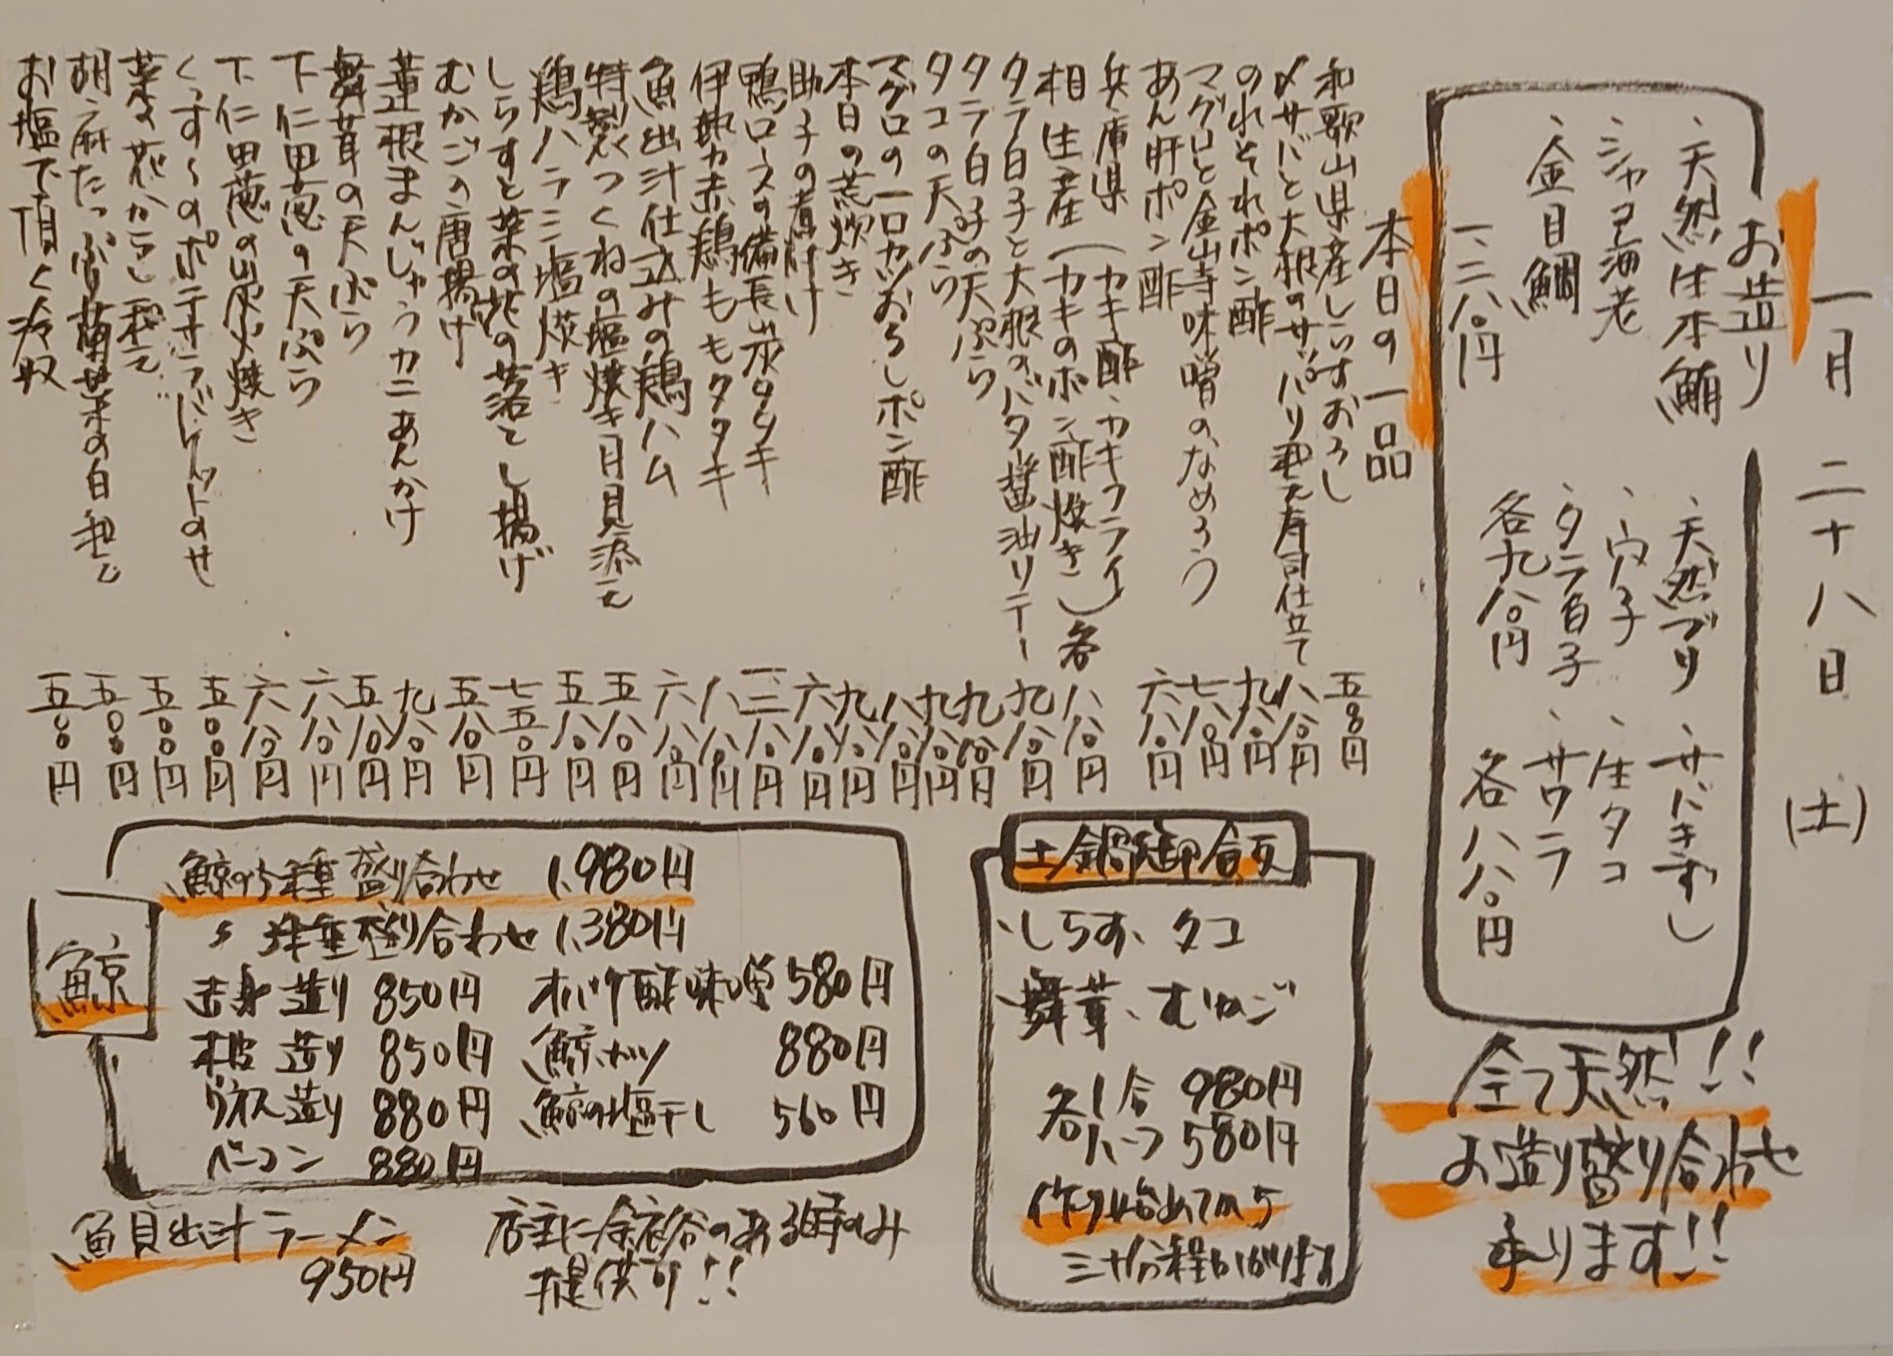 一月二十八日(土)
お造り
、天然生本鮪
、シャコ海老
、金目鯛
一、二八〇円
、天然ブリ
、穴子
、タラ白子
各九八〇円
、サバきずし
、生タコ
、サワラ
各八八〇円
全て天然!!
お造り盛り合わせ
承ります!!
本日の一品
和歌山県産しらすおろし 五〇〇円
〆サバと大根のサッパリ和え寿司仕立て 八八〇円
のれそれポン酢 九八〇円
マグロと金山寺味噌のなめろう 七八〇円
あん肝ポン酢 六八〇円
兵庫県(カキ酢、カキフライ)
相生産(カキのポン酢焼き)各八八〇円
タラ白子と大根のバター醤油ソテー 九八〇円
タラ白子の天ぷら 九八〇円
タコの天ぷら 九八〇円
マグロの一口カツおろしポン酢 八八〇円
本日の荒炊き 九八〇円
助子の煮付け 六八〇円
鴨ロースの備長炭タタキ 一、二八〇円
伊勢赤鶏ももタタキ 八八〇円
魚出汁仕込みの鶏ハム 六八〇円
特製つくねの塩焼き月見添え 五八〇円
鶏ハラミ塩焼き 五八〇円
しらすと菜の花の落とし揚げ 七五〇円
むかごの唐揚げ 五八〇円
蓮根まんじゅうカニあんかけ 九八〇円
舞茸の天ぷら 五八〇円
下仁田葱の天ぷら 六八〇円
下仁田葱の炭火焼き 六八〇円
くっす〜のポテサラバケットのせ 五〇〇円
菜の花からし和え 五〇〇円
胡麻たっぷり菊菜の白和え 五〇〇円
お塩で頂く冷奴 五〇〇円
土鍋御飯
、しらす、タコ
、舞茸、むかご
各1合 980円
各ハーフ 580円
作り始めてから
三十分程かかります
鯨
鯨の5種盛り合わせ 1,980円
〃 3種盛り合わせ 1,380円
赤身造り 850円 オバケ酢味噌 580円
本皮造り 850円 鯨カツ 880円
ウネス造り 880円 鯨の塩干し 560円
ベーコン 880円
魚貝出汁ラーメン
950円
店主に余裕のある時のみ
提供可!!